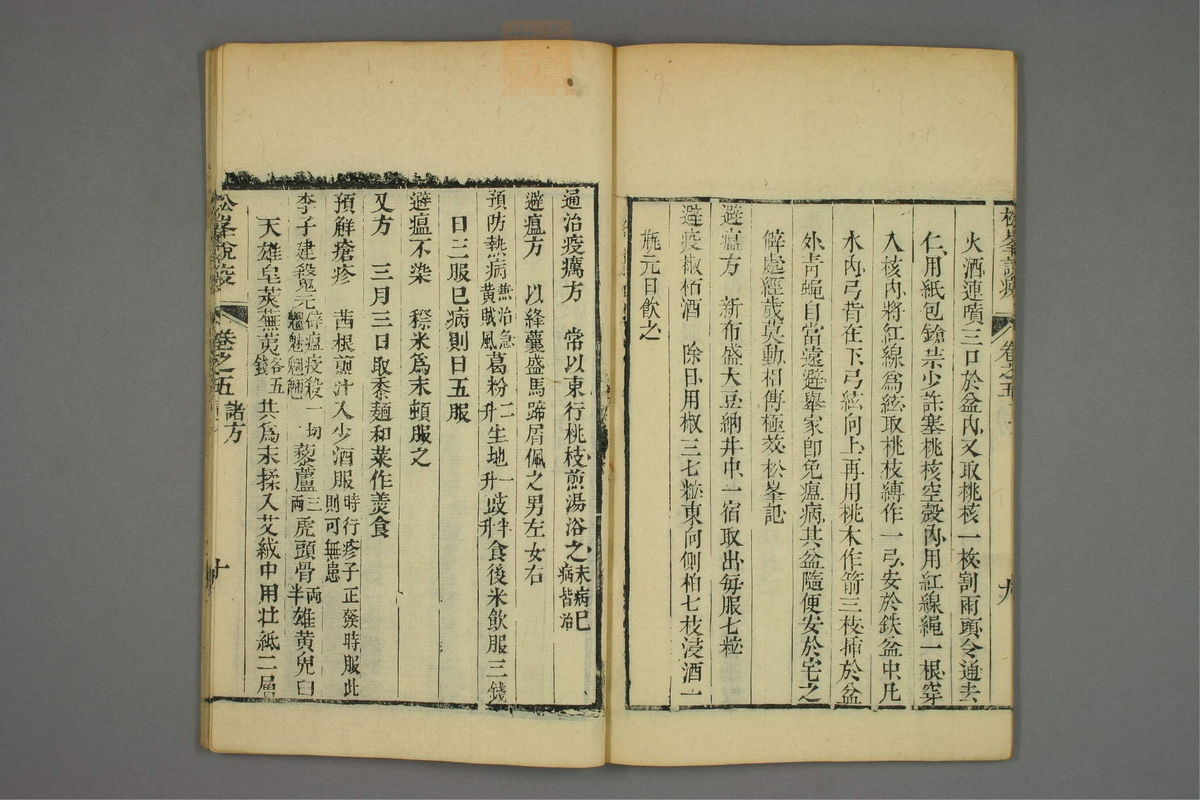 松峯說疫 卷之五 九
火酒連噴三口於盆內又取桃核一枚割兩頭令通去
仁用紙包鎗藥少許塞桃核空殼內用紅線繩一根穿
入核內將紅線為絃取桃枝縛作一弓安於鉄盆中凡
水內弓背在下弓絃向上再用桃木作箭三枝揷於盆
外青蠅自當遠避舉家卽免瘟病其盆隨便安於宅之
僻處經歲莫動相傳極效松峯記
避瘟方 新布盛大豆納井中一宿取出每服七粒
避疫椒栢酒 除日用椒三七粒東向側柏七枝浸酒一
瓶元日飲之
通治疫癘方 常以東行桃枝煎湯浴之未病已病皆治
避瘟方 以絳囊盛馬蹄屑佩之男左女右
預防熱病兼治急黃賊風葛粉二升生地一升豉半升食後米飲服三錢
日三服已病則日五服
避瘟不染 稷米為末頓服之
又方 三月三日取黍麵和菜作羮食
預解瘡疹 茜根煎汁入少酒服時行疹子正發時服此則可無患
李子建殺鬼元避瘟疫殺一切魑魅魍魎藜蘆三兩虎頭骨兩半雄黃鬼臼
天雄皂莢蕪荑各五錢共為末揉入艾絨中用壮紙二層
松峯說疫 卷之五 諸方 十